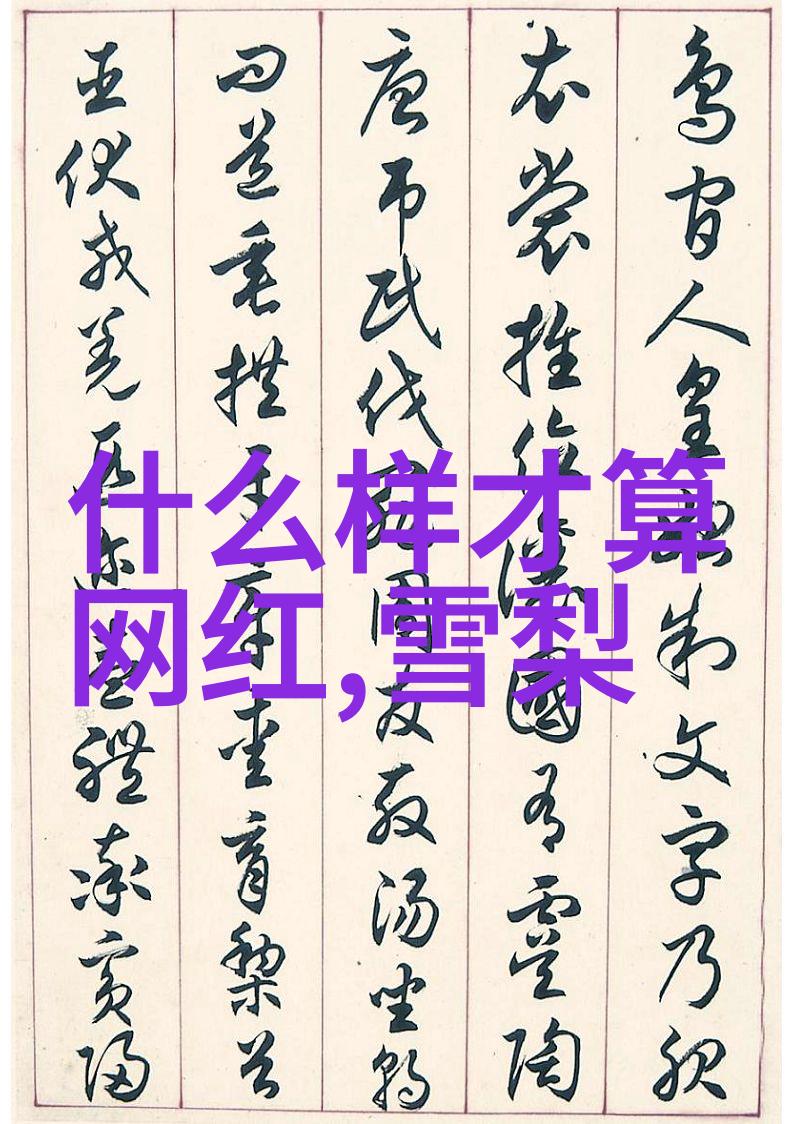 鳥官人皇始制文字乃服
衣裳推位讓國有虞陶
唐吊民伐罪周發殷湯坐朝
問道垂拱平章愛育黎首
臣伏戎羌遐迩壹體率賓歸
什么样才算
网红,雪梨